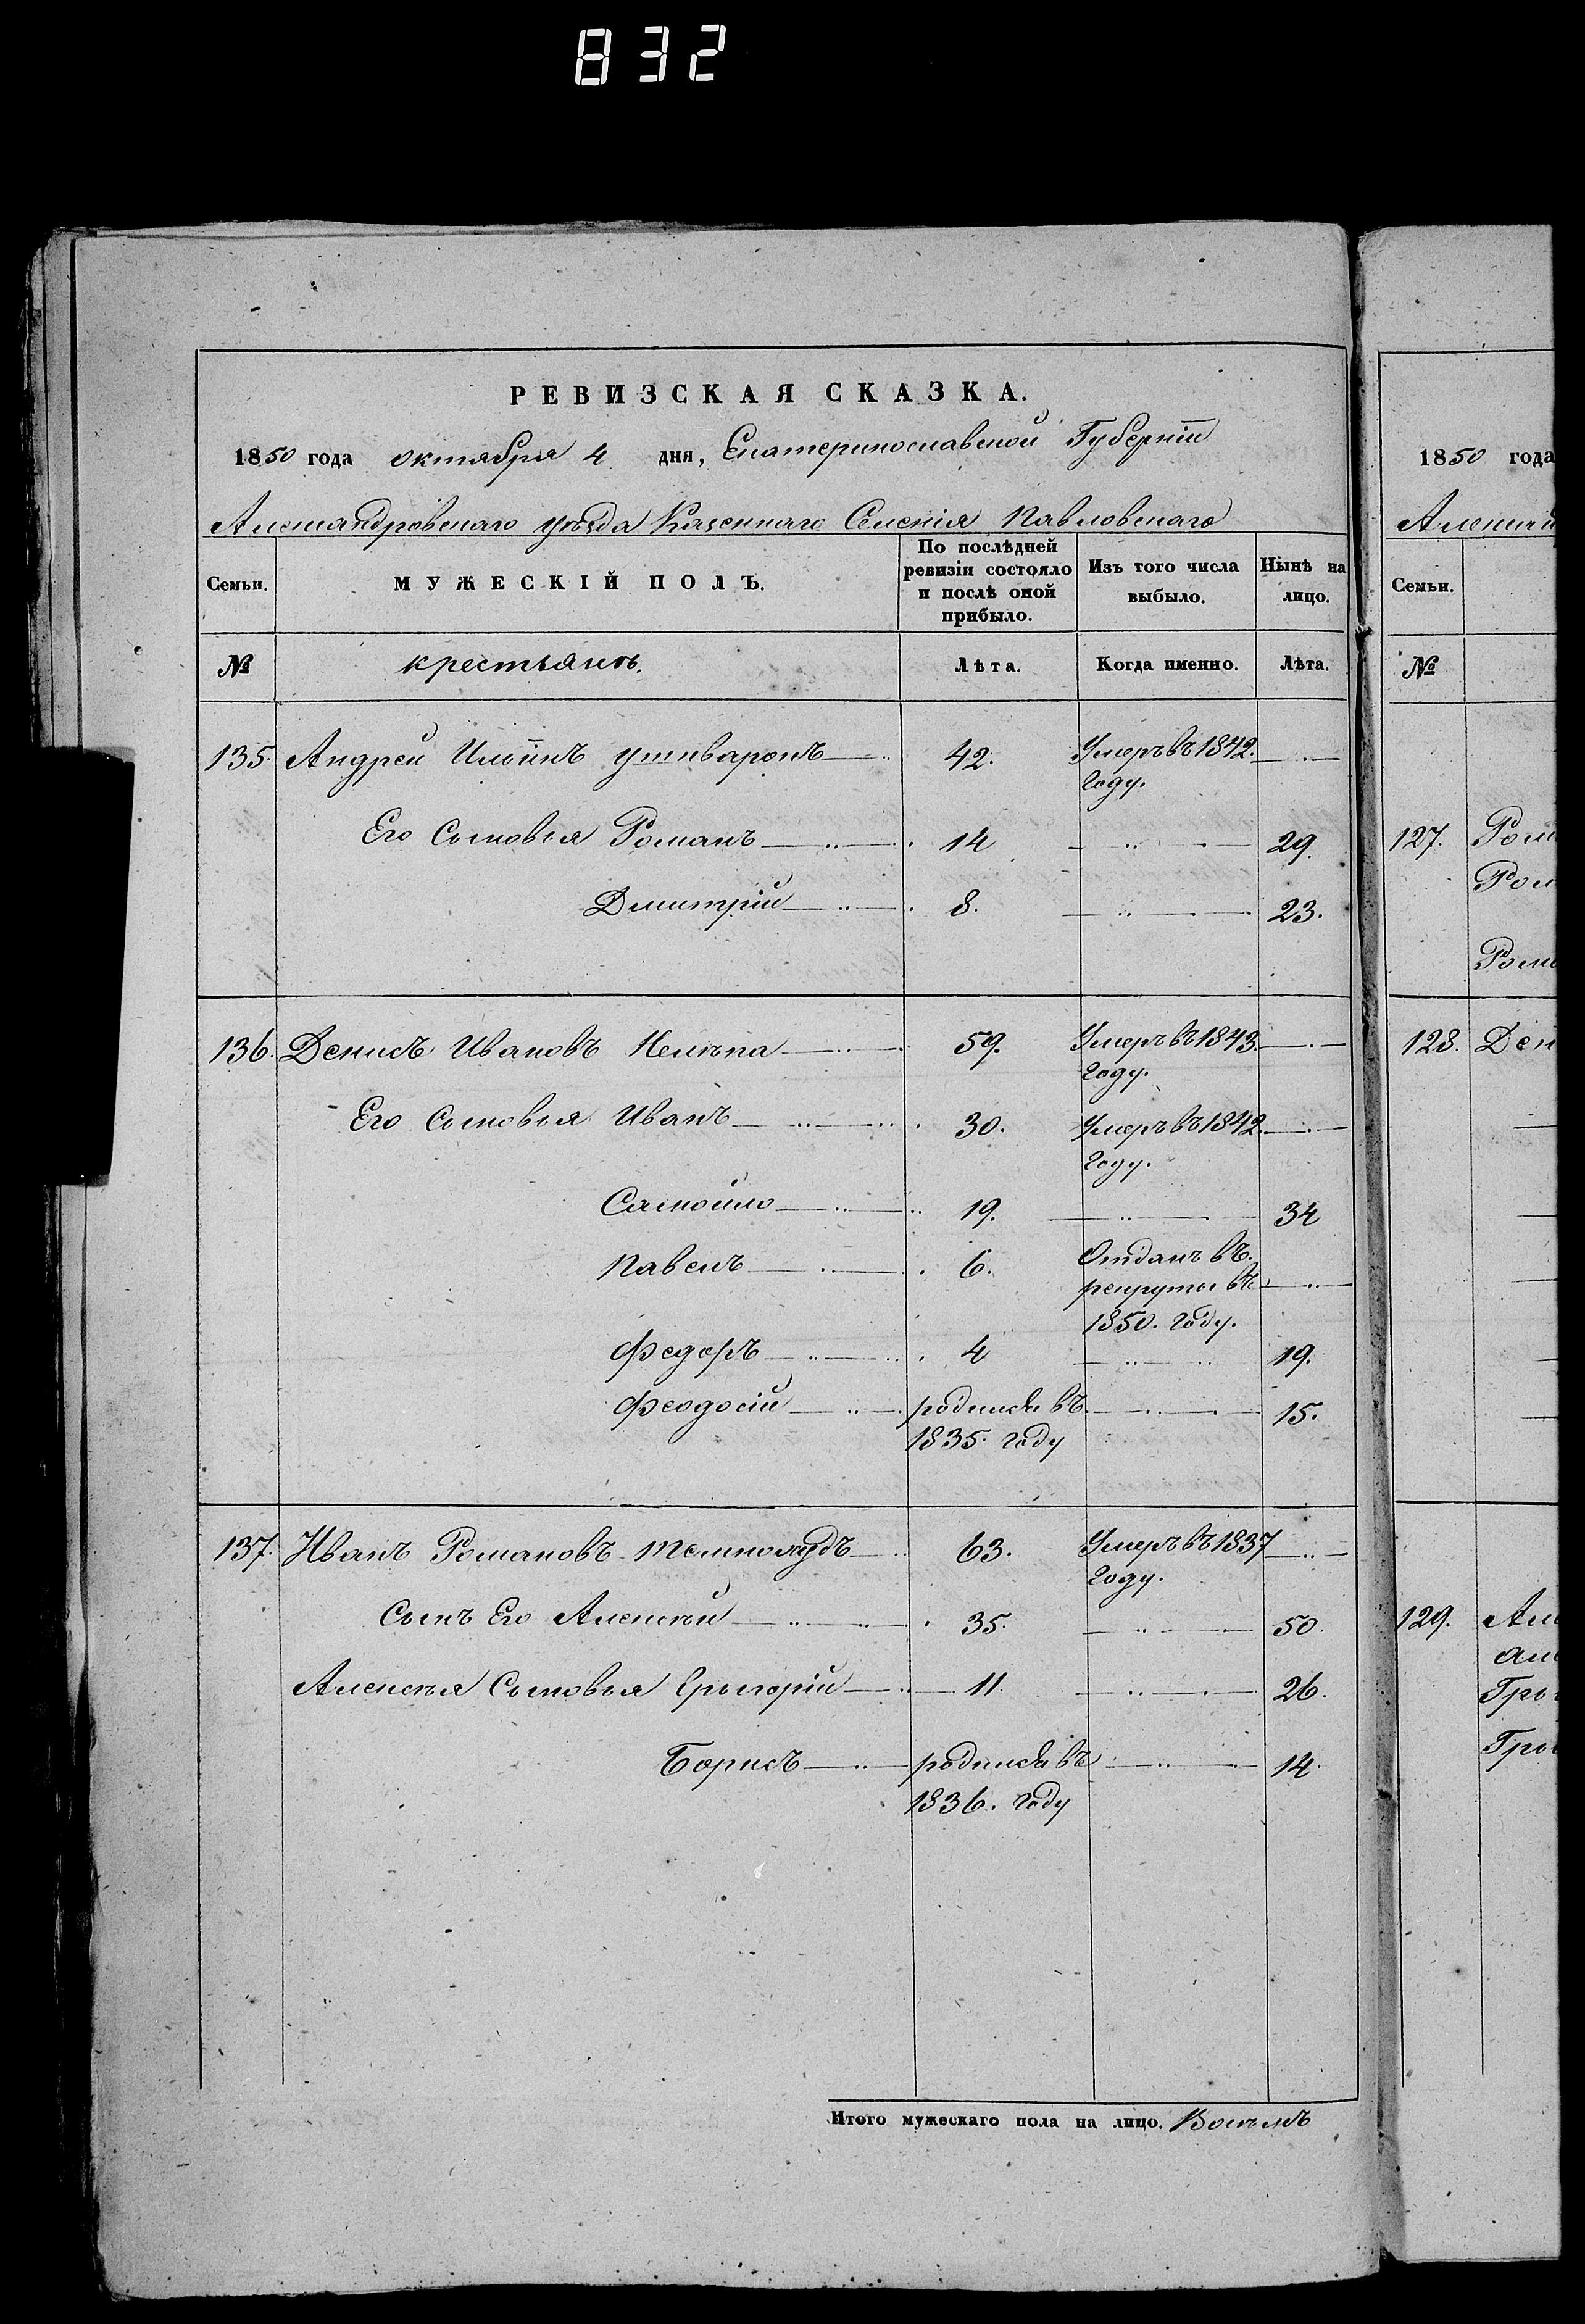 832
РЕВИЗСКАЯ СКАЗКА.
1850 года октября 4 дня, Екатеринославской Губерніи
Александровскаго уѣзда Казеннаго Селенія Павловскаго
Семьи. МУЖЕСКІЙ ПОЛЪ. По послѣдней ревизіи состояло и послѣ оной прибыло. Изъ того числа выбыло. Нынѣ на лицо.
№ крестьянъ. Лѣта. Когда именно. Лѣта.
135. Андрей Ильинъ 42. Умеръ въ 1842.
году.
Его Сыновья Романъ 14 29.
Дмитрій 8. 23.
136. Денисъ Ивановъ Нелѣпа 59. Умеръ въ 1843.
году.
Его Сыновья Иванъ 30. Умеръ въ 1842.
году.
Самойло 19. 34
Павелъ 6. Отданъ въ
рекруты въ
1850. году.
Федоръ 4 19.
Феодосій родился въ 15.
1835. году
137. Иванъ Романовъ 63. Умеръ въ 1837
году.
Сынъ Его Алексѣй 35. 50.
Алексѣя Сыновья Григорій 11. 26.
Борисъ родился въ 14.
1836. году
Итого мужескаго пола на лицо. Восѣмъ
1850 года
Семьи.
№
127.
128.
129.